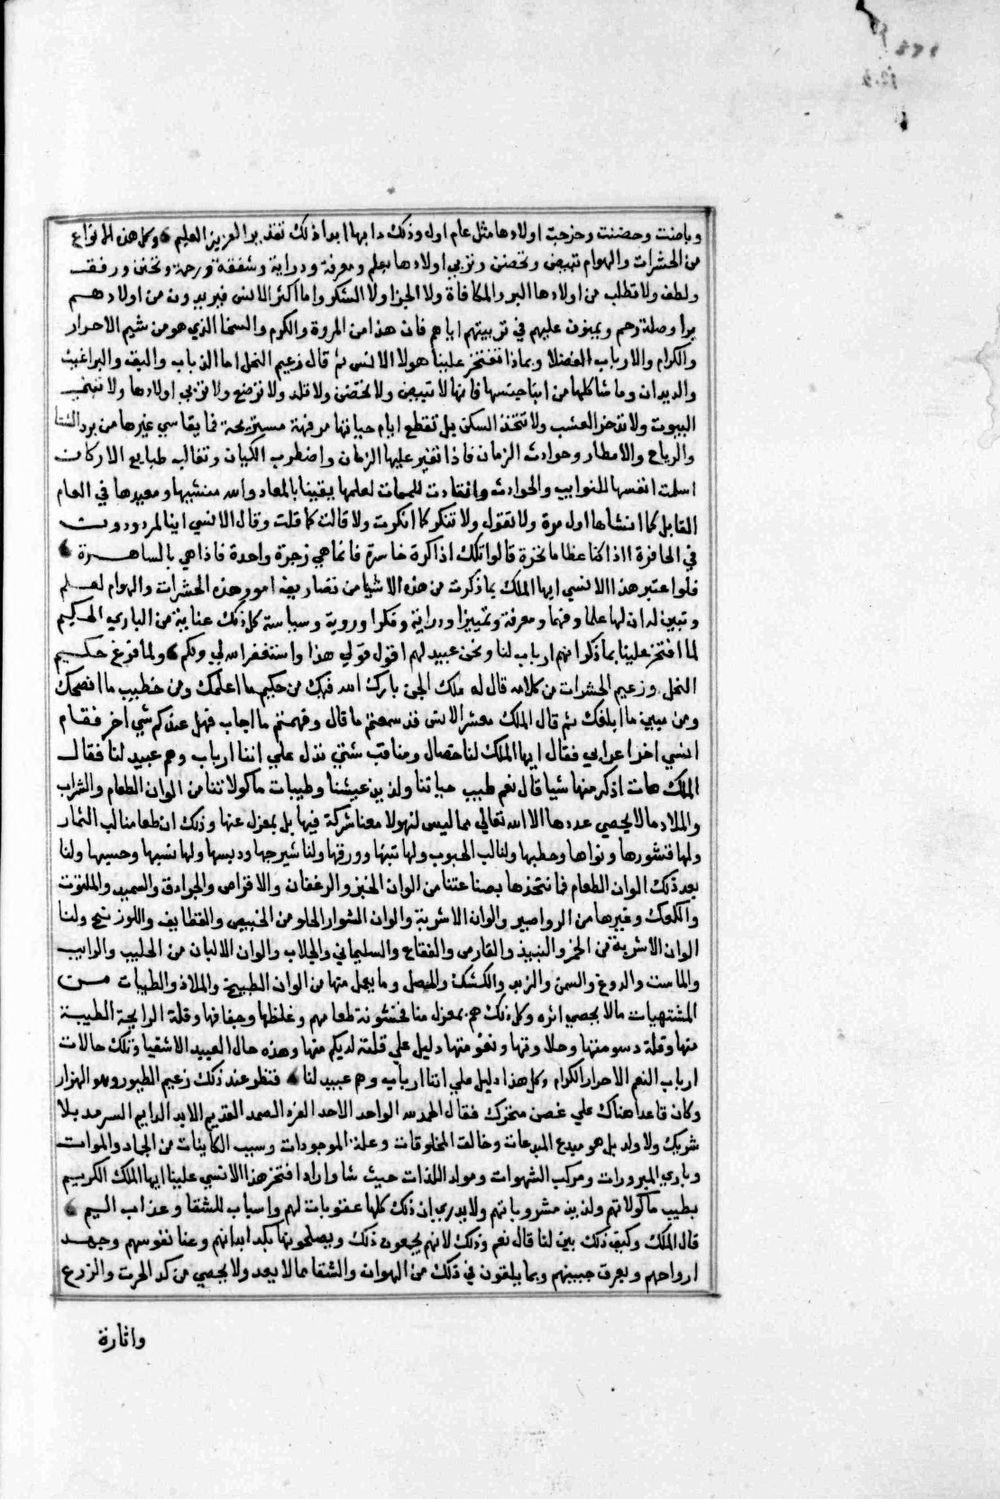 وباضت وحضنت وخرجت اولادها مثل عام اول وذلك دابها ابدا ذلك تقدير العزيز العليم وكل هذه الانواع
من الحشرات والهوام تبيض وتحضن وتربي اولادها بعلم ومعرفة ودراية وشفقة ورحمة وتحنن ورفق
ولطف ولا تطلب من اولادها البر والمكافاة ولا الجزا ولا الشكر واما اكثر الانس فيريدون من اولادهم
برا وصلة رحم ويمنون عليهم في تربيتهم اياهم فان هذا من المروة والكرم والسخا الذي هو من شيم الاحرار
والكرام والارباب الفضلا وبماذا تفتخر علينا هولا الانس ثم قال زعيم النحل اما الذباب والبق والبراغيث
والديدان وما شاكلها من ابنا جنسها فانها لا تبيض ولا تحضن ولا تلد ولا ترضع ولا تربي اولادها ولا تبني
البيوت ولا تدخر العشب ولا تتخذ السكن بل تقطع ايام حياتها مرفهة مستريحة مما يقاسي غيرها من برد الشتا
والرياح والامطار وحوادث الزمان فاذا تغير عليها الزمان واضطرب الكيان وتغالب طبايع الاركان
اسلمت انفسها للنوايب والحوادث وانقادت للممات لعلمها يقينا بالمعاد والله منشيها ومعيدها في العام
القابل كما انشاها اول مرة ولا تقول ولا تنكر كما انكرت ولا قالت كما قلت وقال الانسي اينا لمردودون
في الحافرة ااذا كنا عظاما نخرة قالوا تلك اذا كرة خاسرة فانما هي زجرة واحدة فاذا هي بالساهرة
فلو اعتبر هذا الانسي ايها الملك بما ذكرت من هذه الاشيا من تصاريف امور هذه الحشرات والهوام لعلم
وتبين له ان لها علما وفهما ومعرفة وتمييزا ودراية وفكرا وروية وسياسة كل ذلك عناية من الباري الحكيم
لما افتخر علينا بما ذكر انهم ارباب لنا ونحن عبيد لهم اقول قولي هذا واستغفر الله لي ولكم ولما فرغ حكيم
النحل وزعيم الحشرات من كلامه قال له ملك الجن بارك الله فيك من حكيم ما اعلمك ومن خطيب ما افصحك
ومن مبين ما ابلغك ثم قال الملك معشر الانس قد سمعتم ما قال وفهمتم ما اجاب فهل عندكم شي اخر فقام
انسي اخر اعرابي فقال ايها الملك لنا خصال ومناقب شتي تدل علي اننا ارباب وهم عبيد لنا فقال
الملك هات اذكر منها شيا قال نعم طيب حياتنا ولذيذ عيشنا وطيبات ماكولاتنا من الوان الطعام والشراب
والملاذ ما لا يحصي عددها الا الله تعالي مما ليس لهولا معنا شركة فيها بل بمعزل عنها وذلك ان طعامنا لب الثمار
ولها قشورها ونواها وحطبها ولنا لب الحبوب ولها تبنها وورقها ولنا شيرجها ودبسها ولها كسبها وخشبها ولنا
بعد ذلك الوان الطعام مما نتخذها بصناعتنا من الوان الخبز والرغفان والاقراص والجرادق والسميد والملتوت
والكعك وغيرها من الرواصير والوان الاشربة والوان الشوا والحلو من الخبيص والقطايف واللوزينج ولنا
الوان الاشربة من الخمر والنبيذ والقارص والفقاع والسليماني والجلاب والوان الالبان من الحليب والرايب
والماست والدوغ والسمن والزبد والكشك والمصل وما يعمل منها من الوان الطبيخ والملاذ والطيبات من
المشتهيات ما لا يحصي اثره وكل ذلك هم بمعزل منا فخشونة طعامهم وغلظها وجفافها وقلة الرايحة الطيبة
منها وقلة دسومتها وحلاوتها ونحو منها دليل علي قلته لديكم منها وهذه حال العبيد الاشقيا وتلك حالات
ارباب النعم الاحرار الكرام وكل هذا دليل علي اننا ارباب وهم عبيد لنا فنظر عند ذلك زعيم الطيور وهو الهزار
وكان قاعدا هناك علي غصن متحرك فقال الحمد لله الواحد الاحد الفرد الصمد القديم الابد الدايم السرمد بلا
شريك ولا ولد بل هو مبدع المبدعات وخالق المخلوقات وعلة الموجودات وسبب الكاينات من الجماد والموات
وباري المبرورات ومركب الشهوات ومولد اللذات حيث شا واراد افتخر هذا الانسي علينا ايها الملك الكريم
بطيب ماكولاتهم ولذيذ مشروباتهم ولا يدري ان ذلك كلها عقوبات لهم واسباب للشقا وعذاب اليم
قال الملك وكيف ذلك بين لنا قال نعم وذلك لانهم يجمعون ذلك ويصلحونها بكد ابدانهم وعنا نفوسهم وجهد
ارواحهم وبعرق جبينهم وبما يلقون في ذلك من الهوان والشقا مما لا يعد ولا يحصي من كد الحرث والزرع
واثارة